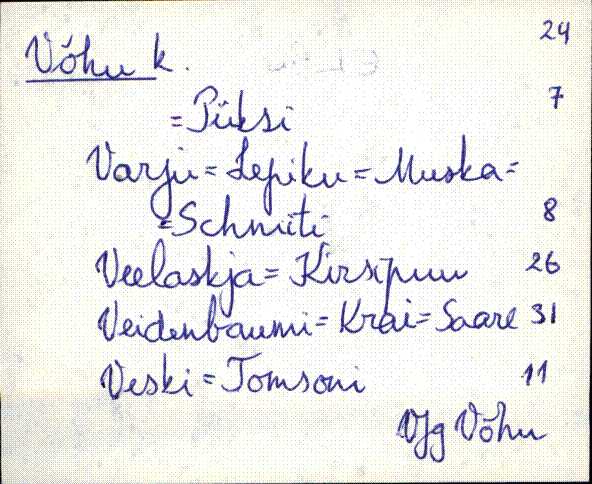 24
Võhu k.
= Püksi 7
Varju = Lepiku = Muska =
= Schmiti 8
Veelaskja = Kirsipuu 26
Veidenbaumi = Krai = Saare 31
Veski = Tomsoni 11
Vjg Võhu